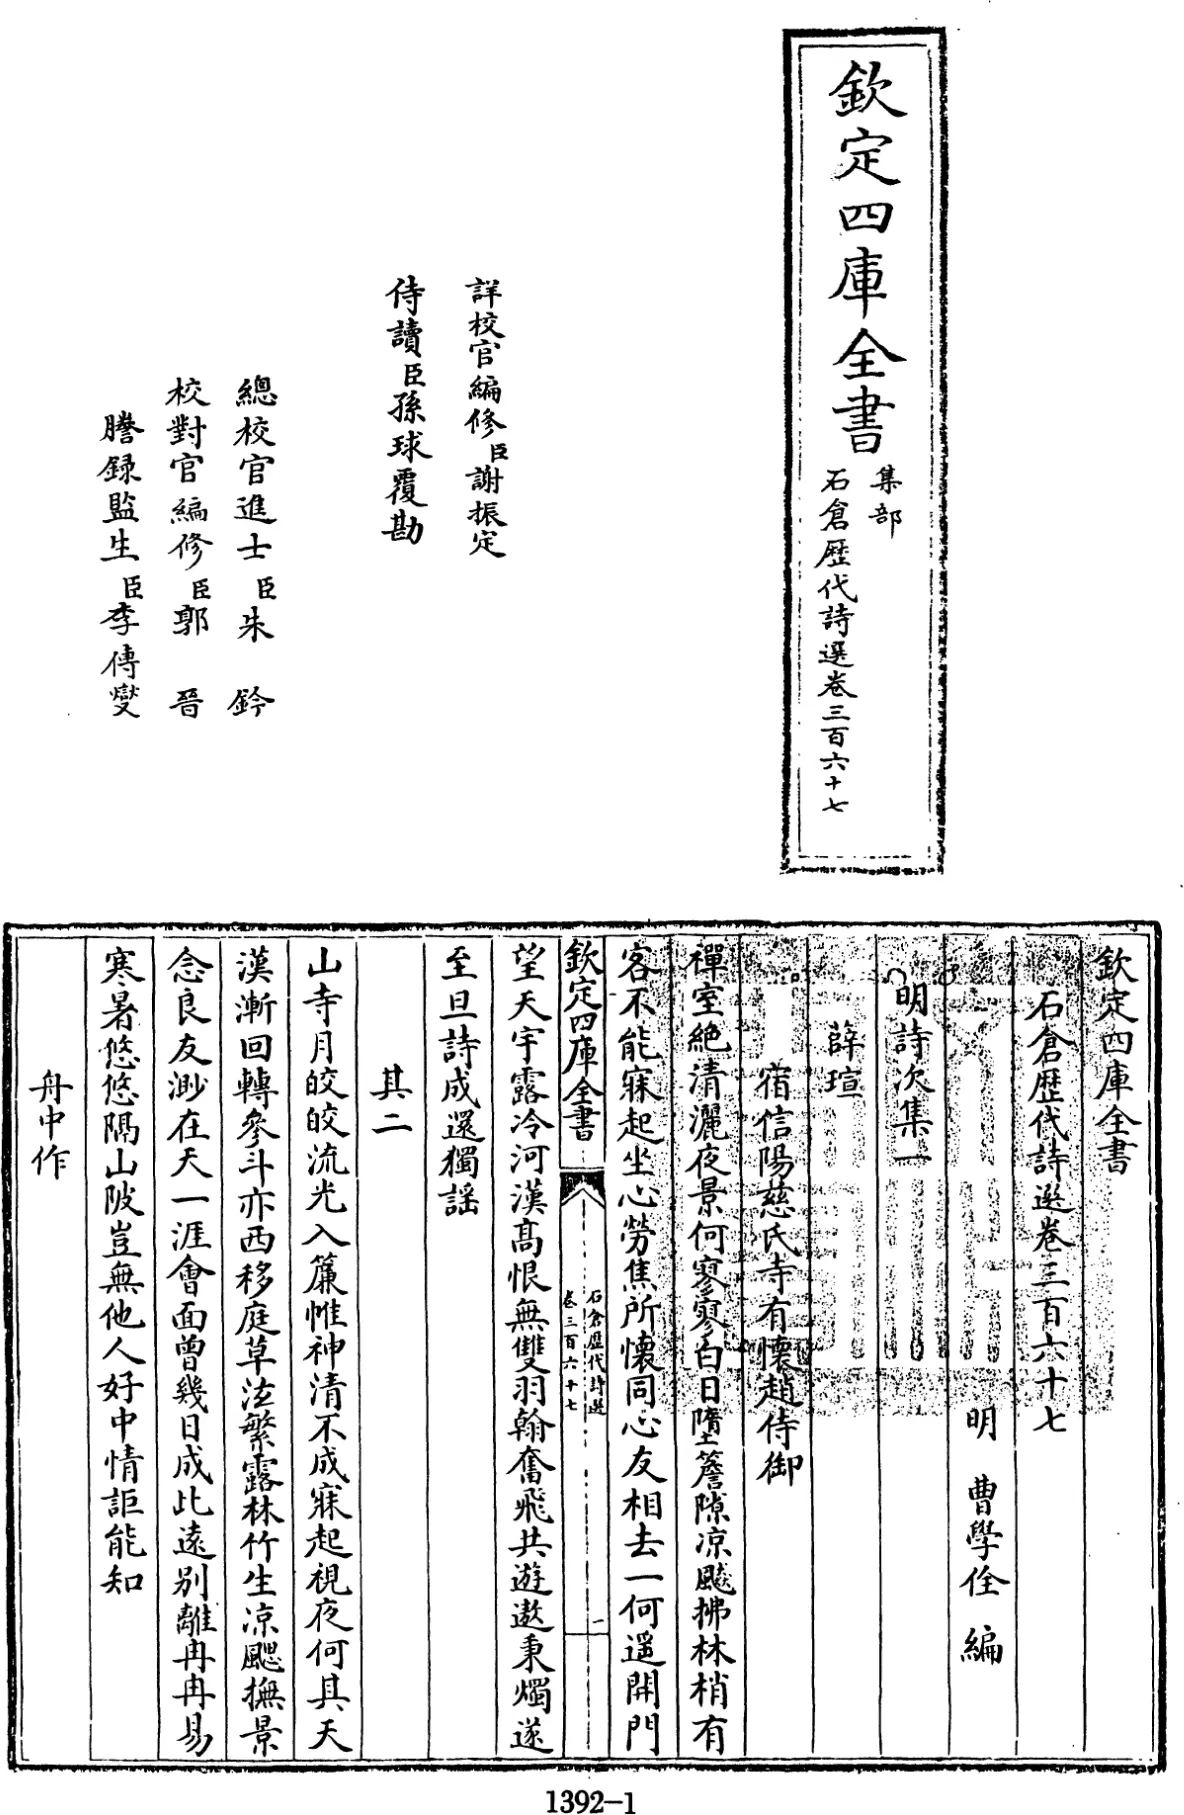 欽定四庫全書
集部
石倉歷代詩選卷三百六十七
詳校官編修臣謝振定
侍讀臣孫球覆勘
總校官進士臣朱鈐
校對官編修臣郭晉
謄録監生臣李傳燮
欽定四庫全書
石倉歷代詩選卷三百六十七
明 曹學佺 編
明詩次集一
薛瑄
宿信陽慈氏寺有懷趙侍御
禪室絶清灑夜景何寥寥白日隋簷隙凉飇拂林梢有
客不能寐起坐心勞焦所懷同心友相去一何遥開門
欽定四庫全書
石倉歷代詩選
卷三百六十七
一
望天宇露冷河漢髙恨無雙羽翰奮飛共遊遨秉燭遂
至旦詩成還獨謡
其二
山寺月皎皎流光入簾帷神清不成寐起視夜何其天
漢漸回轉參斗亦西移庭草泫繁露林竹生凉颸撫景
念良友渺在天一涯會面曾幾日成此逺别離冉冉易
寒暑悠悠隔山陂豈無他人好中情詎能知
舟中作
1392-1